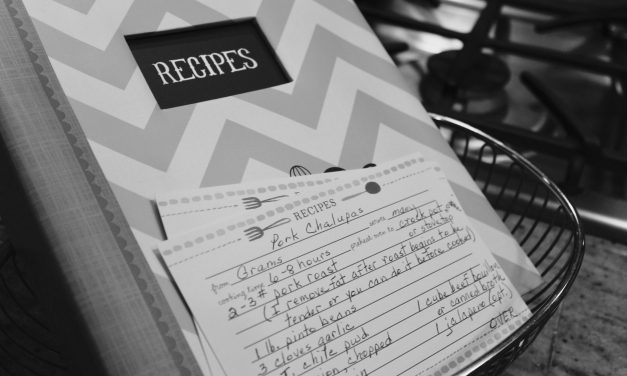 RECIPES
RECIPES
Pork Chalupas serves many
from Grams preheat oven to crock pot
cooking time 6-8 hours or stovetop
2-3# pork roast
(I remove fat after roast begins to be
tender or you can do it before cooked)
1 lb. pinto beans 1 cube beef bouillon
3 cloves garlic or canned broth
T. chile pwd 1 jalapeño (opt.)
chopped
OVER